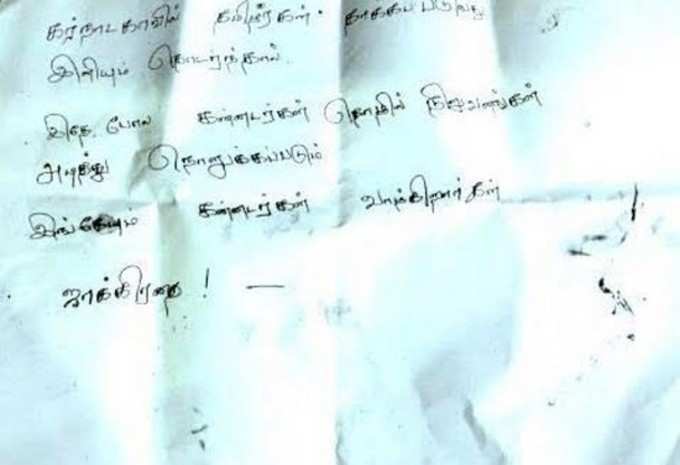 கர்நாடகாவில் தமிழர்கள். தாக்கப்படுவது
இனியும் தொடர்ந்தால்.
இதை போல கன்னடர்கள் தொழில் நிறுவனங்கள்
அடித்து நொறுக்கப்படும்
இங்கேயும் கன்னடர்கள் வாழ்கிறார்கள்
ஜாக்கிரதை! —